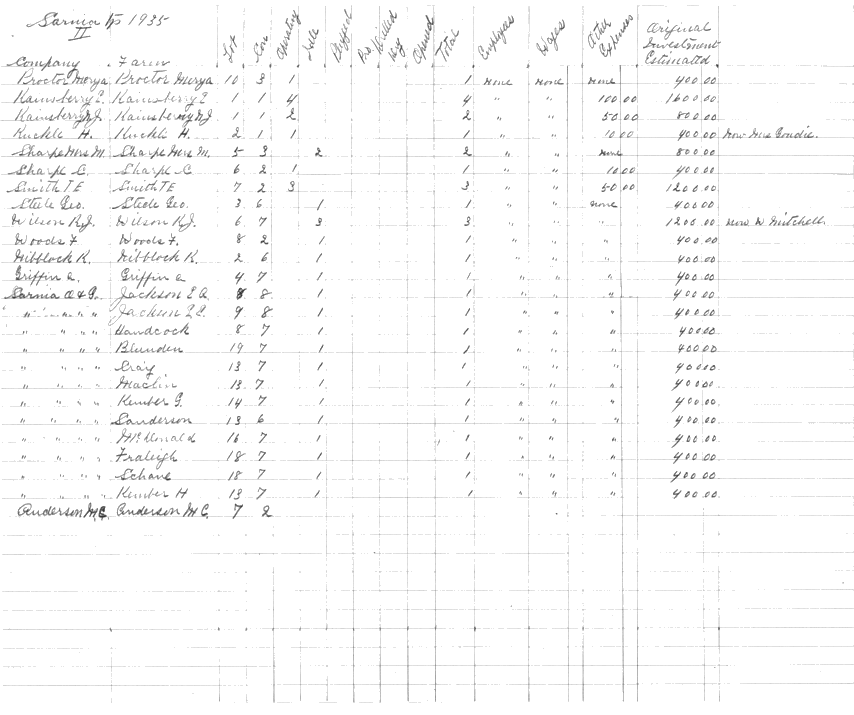 Sarnia Tp 1935
II
Company Farm Lot Con Operating Idle Drilled Dry Total Employees Wages Other Expenses Original Investment Estimated
Proctor Merya Proctor Merya 10 3 1 1 none none none 400.00
Kainsberry E. Kainsberry E 1 1 4 4 " " 100.00 1600.00
Kainsberry N.J. Kainsberry N.J 1 1 2 2 " " 50.00 800.00
Kuckle H. Kuckle H. 2 1 1 1 " " 10.00 400.00 Now Mrs Goudie.
Sharpe Mrs M. Sharpe Mrs M. 5 3 2 2 " " none 800.00
Sharpe C. Sharpe C 6 2 1 1 " " 10.00 400.00
Smith T E Smith T E 7 2 3 3 " " 50.00 1200.00
Steele Geo. Steele Geo. 3 6 1 1 " " none 400.00
Wilson R.J. Wilson R.J. 6 7 3 3 " " " 1200.00 Now W Mitchell
Woods F Woods F. 8 2 1 1 " " " 400.00
Niblock K. Niblock K. 2 6 1 1 " " " 400.00
Griffin A. Griffin A 4 7 1 1 " " " 400.00
Sarnia O & G. Jackson E A. 8 8 1 1 " " " 400.00
" " " " Jackson E.E. 9 8 1 1 " " " 400.00
" " " " Handcock 8 7 1 1 " " " 400.00
" " " " Blunden 19 7 1 1 " " " 400.00
" " " " Cray 13 7 1 1 " " " 400.00
" " " " Maclin 13 7 1 1 " " " 400.00
" " " " Kember G. 14 7 1 1 " " " 400.00
" " " " Sanderson 13 6 1 1 " " " 400.00
" " " " McDonald 16 7 1 1 " " " 400.00
" " " " Fraleigh 18 7 1 1 " " " 400.00
" " " " Schane 18 7 1 1 " " " 400.00
" " " " Kember H 13 7 1 1 " " " 400.00
Anderson M.C. Anderson M C. 7 2